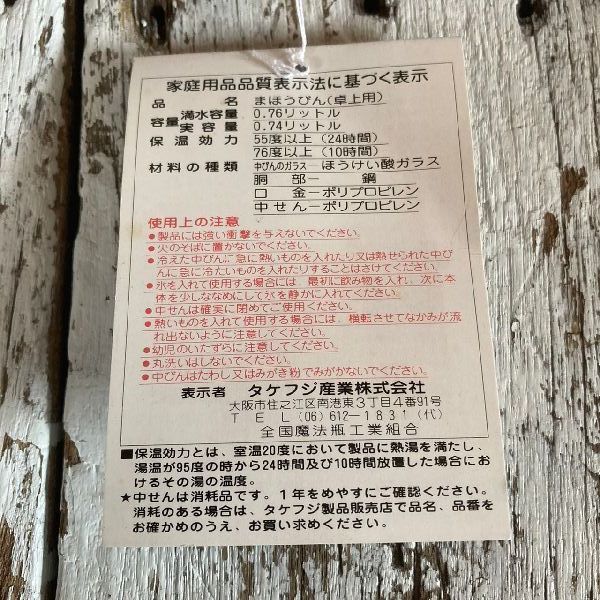 家庭用品品質表示法に基づく表示
品名 まほうびん(卓上用)
容量 満水容量 0.76リットル
実容量 0.74リットル
保温効力 55度以上(24時間)
76度以上(10時間)
材料の種類 中びんのガラスーほうけい酸ガラス
胴部ー鋼
口金ーポリプロピレン
中せんーポリプロピレン
使用上の注意
●製品には強い衝撃を与えないでください。
●火のそばに置かないでください。
●冷えた中びんに急に熱いものを入れたり又は熱せられた中び
んに急に冷たいものを入れたりすることはさけてください。
●氷を入れて使用する場合には、最初に飲み物を入れ、次に本
体を少しななめにして氷を静かに入れてください。
●中せんは確実に閉めてご使用ください。
●熱いものを入れて使用する場合には、横転させてなかみが流
れ出ないように注意してください。
●幼児のいたずらに注意してください。
●丸洗いはしないでください。
●中びんはたわし又はみがき粉でみがかないでください。
表示者 タケフジ産業株式会社
大阪市住之江区南港東3丁目4番91号
TEL(06)612-1831(代)
全国魔法瓶工業組合
■保温効力とは、室温20度において製品に熱湯を満たし、
湯温が95度の時から24時間及び10時間放置した場合にお
けるその湯の温度。
★中せんは消耗品です。1年をめやすにご確認ください。
消耗のある場合は、タケフジ製品販売店で品名、品番を
お確かめのうえ、お買い求めください。